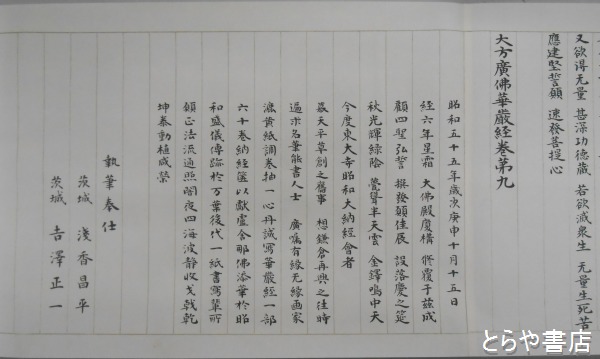 又欲得无量 甚深功徳蔵 若欲滅衆生 无量生死苦
應建堅誓願 速發菩提心
大方廣佛華嚴経巻第九
昭和五十五年歳次庚申十月十五日
経六年星霜 大佛殿廈構 修覆于茲成
顧四聖弘誓 撰殿願佳辰 設落慶之筵
秋光輝緑陰 鸞聲半天雲 金鐸鳴中天
今度東大寺昭和大納経會者
募天平草創之舊事 想鎌倉再興之往時
遍求名筆能書人士 廣嘱有縁无縁画家
漉黄紙調巻軸一心丹誠寫華嚴経一部
六十巻納経匧以獻盧舎那佛添華於昭
和盛儀傳跡於万葉後代一紙書寫輩所
願正法流通照闇夜四海波静收戈戟乾
坤泰動植咸榮
執筆奉仕
茨城 淺香昌平
茨城 吉澤正一
とらや書店